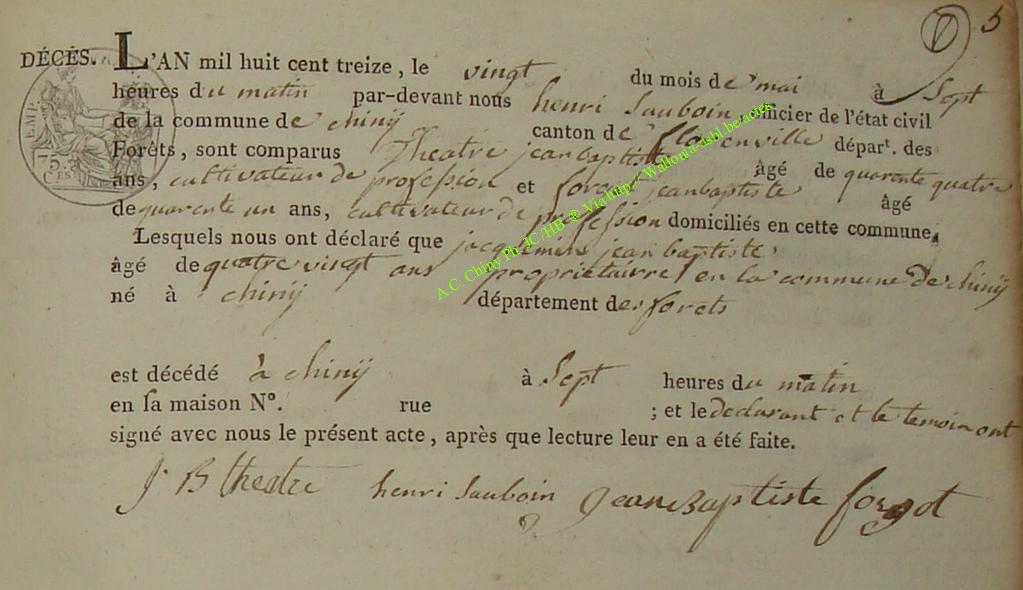 5
DÉCÈS. L'AN mil huit cent treize, le vingt du mois de mai à Sept
heures du matin par-devant nous henri Sauboin officier de l'état civil
de la commune de chinÿ canton de florenville départ. des
Forêts, sont comparus Theatre jean baptiste âgé de quarente quatre
ans, cultivateur de profession et forgot jeanbaptiste âgé
de quarente un ans, cultivateur de profession domiciliés en cette commune,
Lesquels nous ont déclaré que jacquemin jean baptiste,
âgé de quatre vingt ans propriétairre en la commune de chinÿ
né à chinÿ département des forets
est décédé à chinÿ à Sept heures du matin
en sa maison N°. rue ; et le declarant et le temoin ont
signé avec nous le présent acte, après que lecture leur en a été faite.
J B theatre henri Sauboin Jean Baptiste forgot
EMP.
75.
CES
A.C. Chiny Ph. JC/HB @ Via http://Wallonia-asbl.be/actes